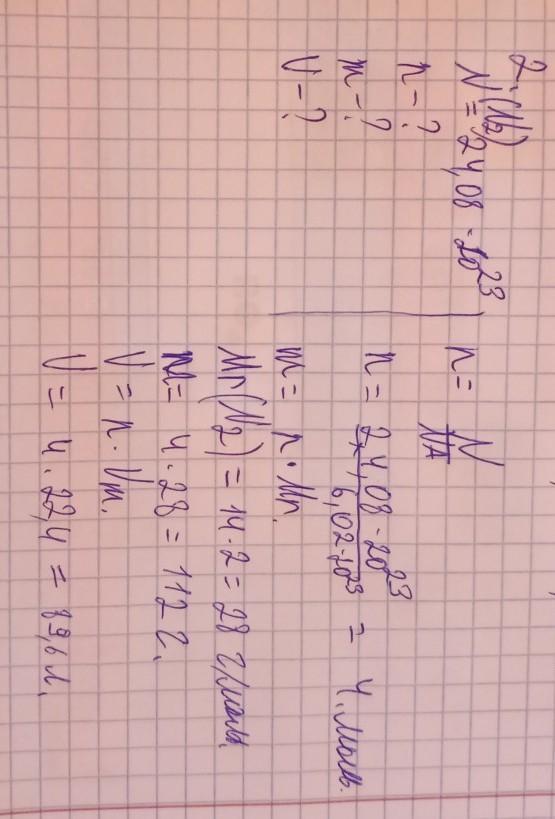 2.
N(N2)
= 24,08 · 10^23
n - ?
m - ?
V - ?
n = N/NA
n = 24,08 · 10^23 / 6,02 · 10^23 = 4 моль.
m = n · Mr.
Mr(N2) = 14 · 2 = 28 г/моль.
m = 4 · 28 = 112 г.
V = n · Vm.
V = 4 · 22,4 = 89,6 л.